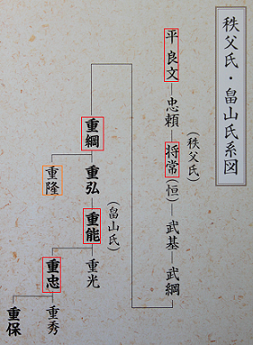 秩父氏・畠山氏系図
平良文
忠頼
(秩父氏)
将常
(恒)
武基
武綱
重綱
重隆
重弘
(畠山氏)
重能
重光
重忠
重秀
重保